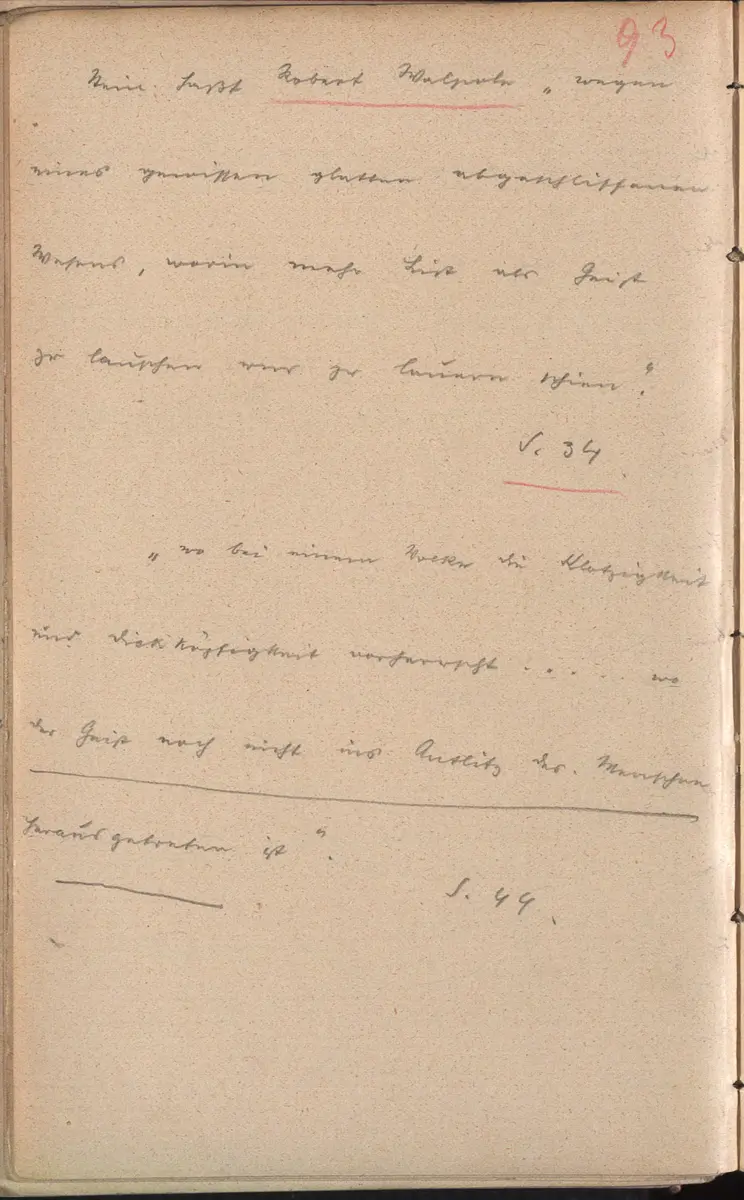 93
Stein haßt Robert Walpole „wegen
eines gewissen glatten abgeschliffenen
Wesens, worin mehr List als Geist
zu lauschen und zu lauern schien“.
S. 34
„wo bei einem Volke die Klotzigkeit
und Dickköpfigkeit vorherrscht ..... wo
der Geist noch nicht ins Antlitz des Menschen
herausgetreten ist“.
S. 44.